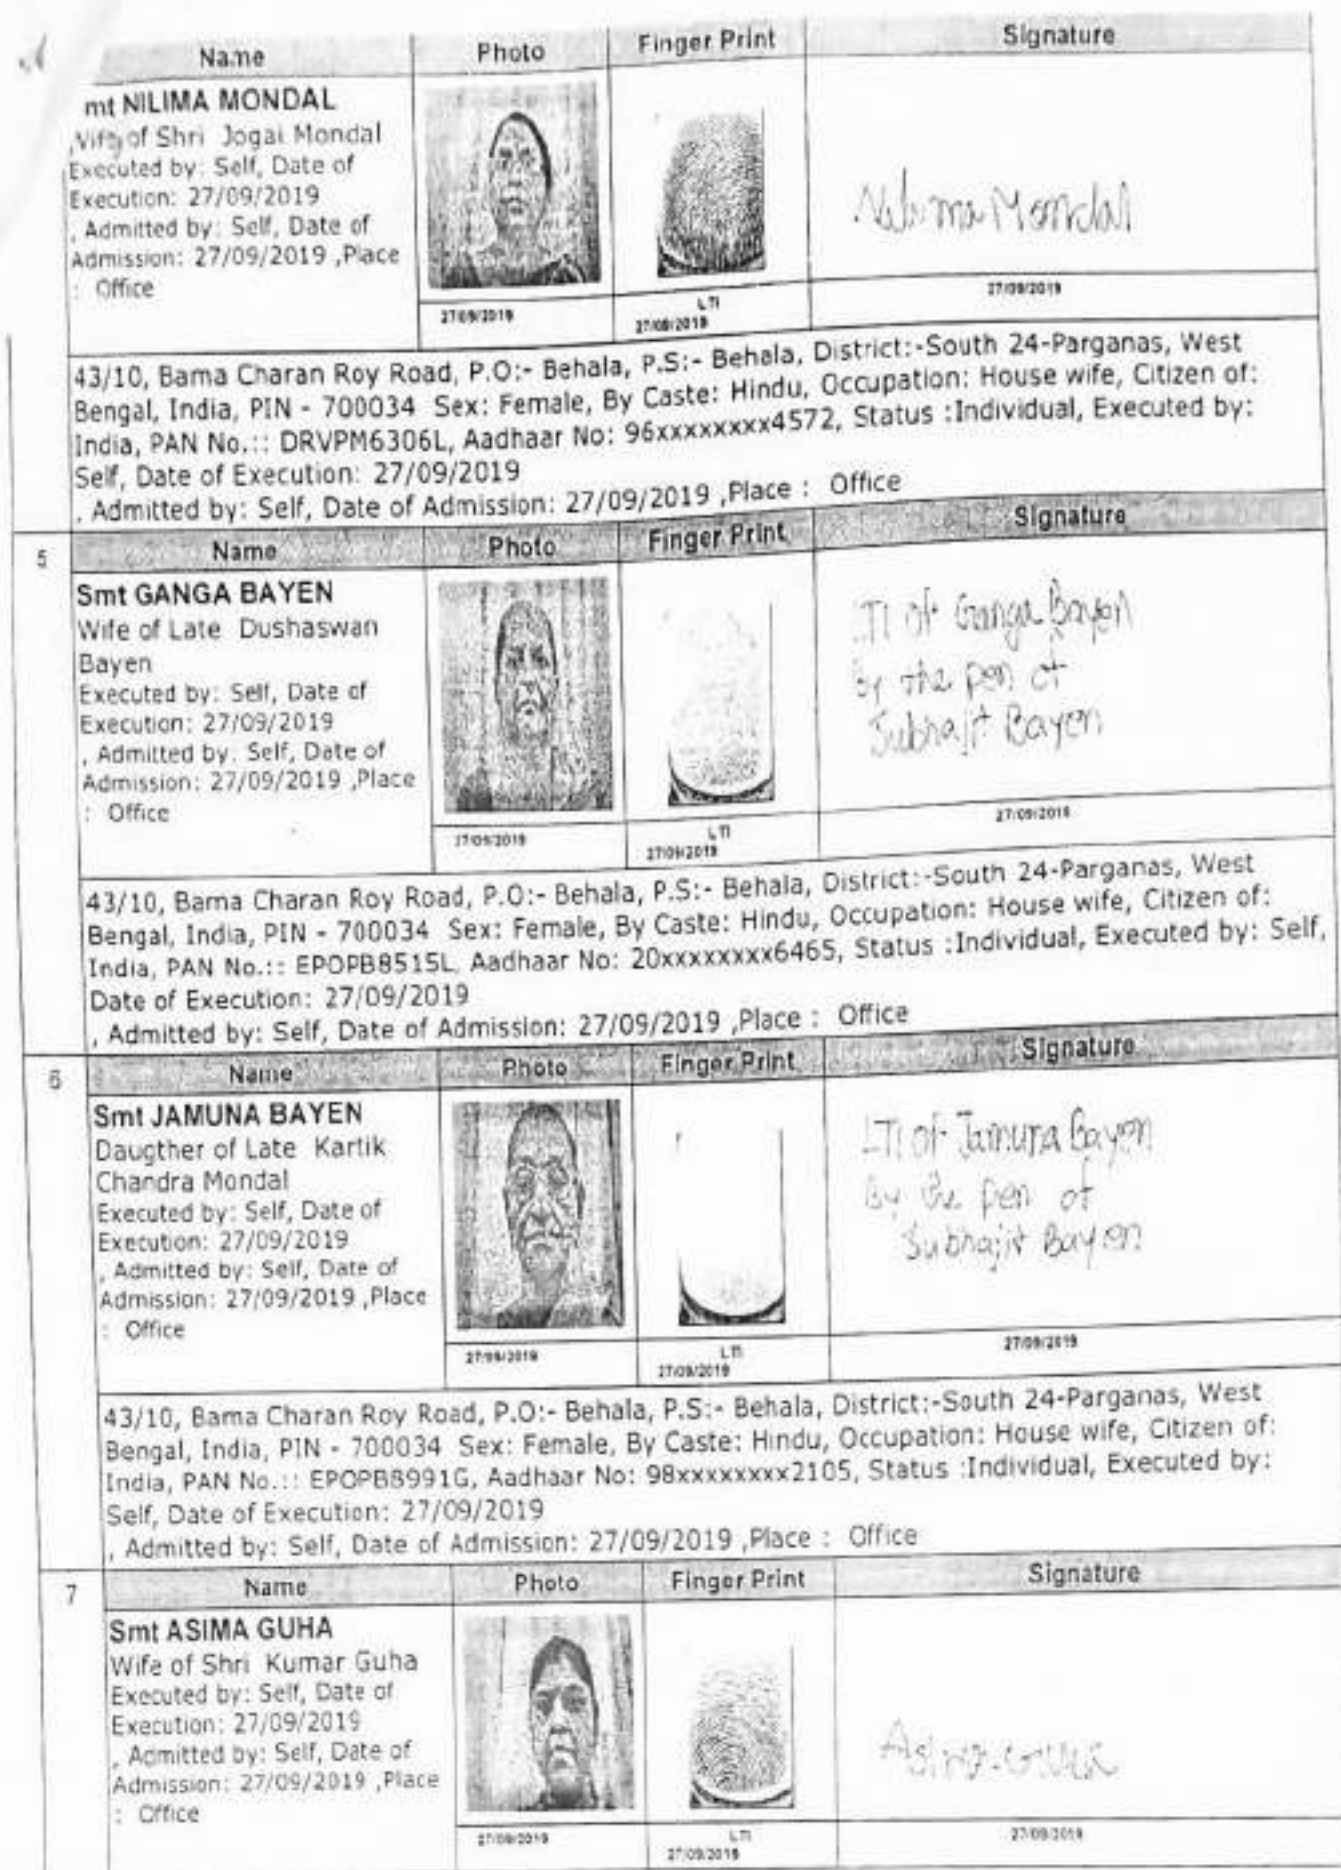 Name Photo Finger Print Signature
mt NILIMA MONDAL
Wife of Shri Jogai Mondal
Executed by: Self, Date of
Execution: 27/09/2019
, Admitted by: Self, Date of
Admission: 27/09/2019 ,Place
: Office
Nilima Mondal
27/09/2019 LTI 27/09/2019 27/09/2019
43/10, Bama Charan Roy Road, P.O:- Behala, P.S:- Behala, District:-South 24-Parganas, West
Bengal, India, PIN - 700034 Sex: Female, By Caste: Hindu, Occupation: House wife, Citizen of:
India, PAN No.:: DRVPM6306L, Aadhaar No: 96xxxxxxxx4572, Status :Individual, Executed by:
Self, Date of Execution: 27/09/2019
, Admitted by: Self, Date of Admission: 27/09/2019 ,Place : Office
5 Name Photo Finger Print Signature
Smt GANGA BAYEN
Wife of Late Dushaswan
Bayen
Executed by: Self, Date of
Execution: 27/09/2019
, Admitted by: Self, Date of
Admission: 27/09/2019 ,Place
: Office
LTI of Ganga Bayen
By the pen of
Subhajit Bayen
27/09/2019 LTI 27/09/2019 27/09/2019
43/10, Bama Charan Roy Road, P.O:- Behala, P.S:- Behala, District:-South 24-Parganas, West
Bengal, India, PIN - 700034 Sex: Female, By Caste: Hindu, Occupation: House wife, Citizen of:
India, PAN No.:: EPOPB8515L, Aadhaar No: 20xxxxxxxx6465, Status :Individual, Executed by: Self,
Date of Execution: 27/09/2019
, Admitted by: Self, Date of Admission: 27/09/2019 ,Place : Office
6 Name Photo Finger Print Signature
Smt JAMUNA BAYEN
Daugther of Late Kartik
Chandra Mondal
Executed by: Self, Date of
Execution: 27/09/2019
, Admitted by: Self, Date of
Admission: 27/09/2019 ,Place
: Office
LTI of Jamuna Bayen
By the pen of
Subhajit Bayen
27/09/2019 LTI 27/09/2019 27/09/2019
43/10, Bama Charan Roy Road, P.O:- Behala, P.S:- Behala, District:-South 24-Parganas, West
Bengal, India, PIN - 700034 Sex: Female, By Caste: Hindu, Occupation: House wife, Citizen of:
India, PAN No.:: EPOPB8991G, Aadhaar No: 98xxxxxxxx2105, Status :Individual, Executed by:
Self, Date of Execution: 27/09/2019
, Admitted by: Self, Date of Admission: 27/09/2019 ,Place : Office
7 Name Photo Finger Print Signature
Smt ASIMA GUHA
Wife of Shri Kumar Guha
Executed by: Self, Date of
Execution: 27/09/2019
, Admitted by: Self, Date of
Admission: 27/09/2019 ,Place
: Office
27/09/2019 LTI 27/09/2019 27/09/2019